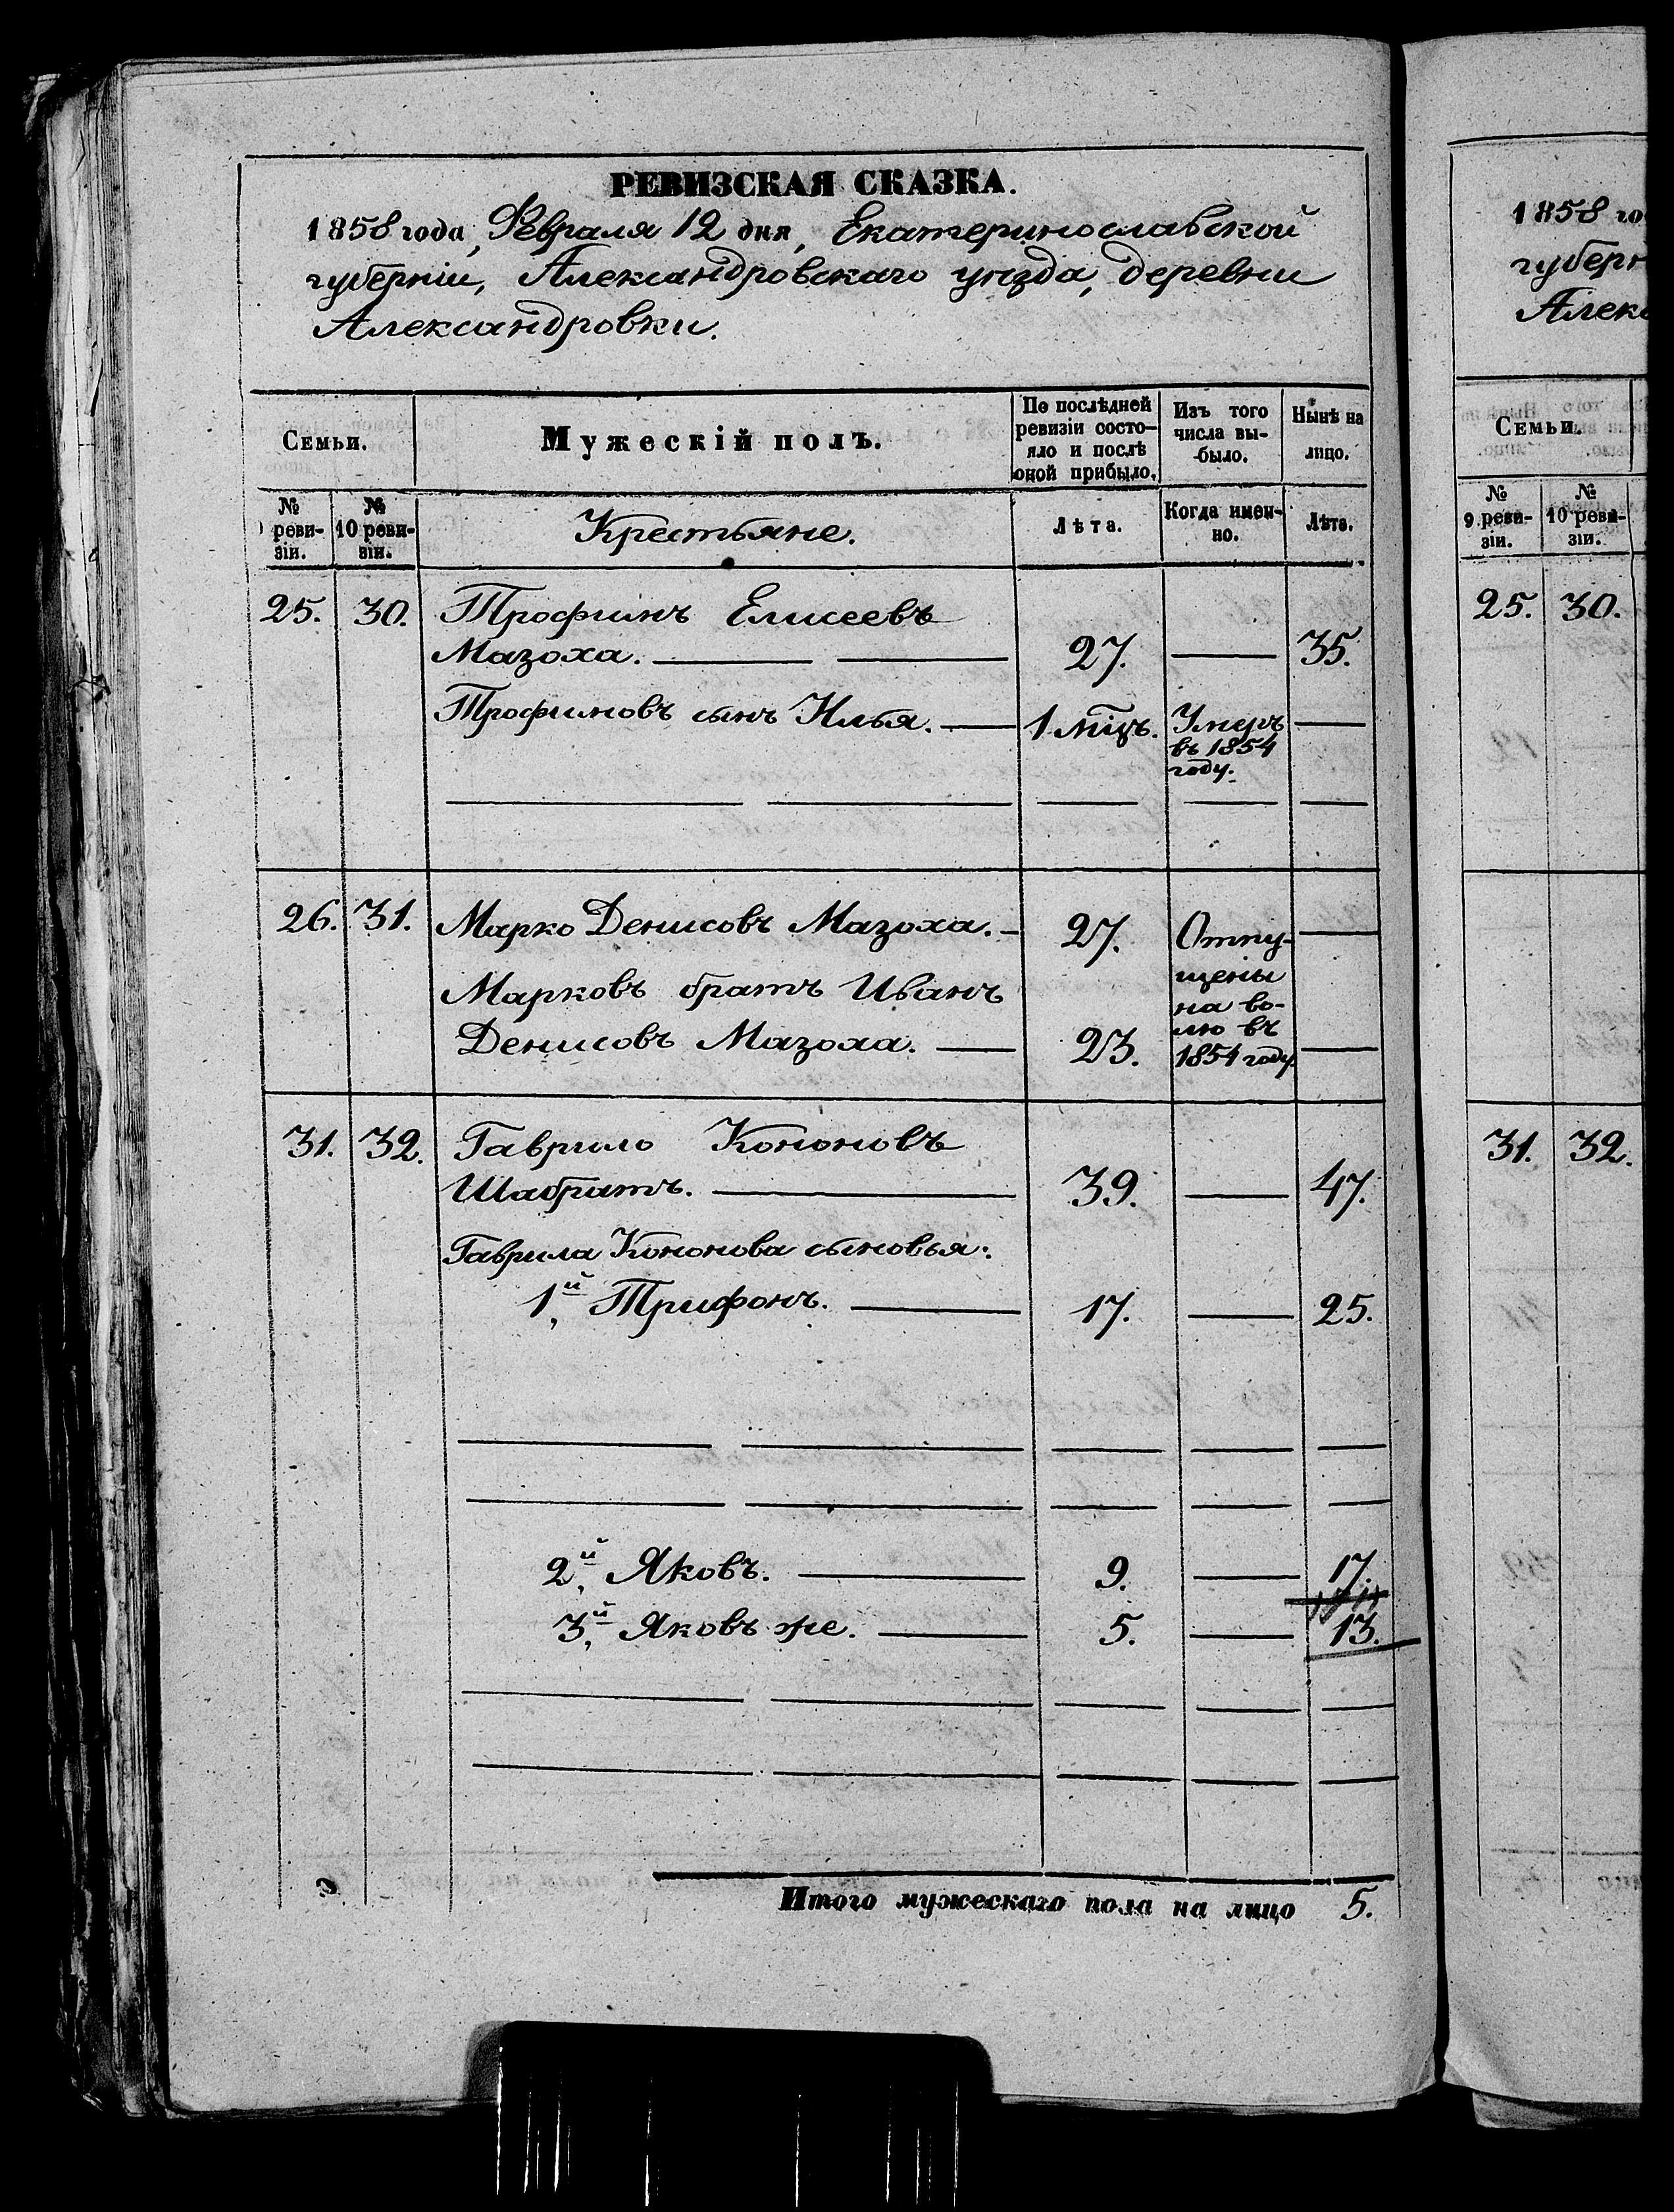 РЕВИЗСКАЯ СКАЗКА.
1858 года, Февраля 12 дня, Екатеринославской
губерніи, Александровскаго уѣзда, деревни
Александровки.
Семьи.
Мужескій полъ.
По послѣдней ревизіи состояло и послѣ оной прибыло.
Изъ того числа выбыло.
Нынѣ на лицо.
№ 9 ревизіи.
№ 10 ревизіи.
Крестьяне.
Лѣта.
Когда именно.
Лѣта.
25. 30. Трофимъ Елисеевъ
Мазоха. 27. — 35.
Трофимовъ сынъ Илья. 1 мѣцъ. Умеръ въ 1854 году. —
26. 31. Марко Денисовъ Мазоха. 27. Отпущены на волю въ 1854 году. —
Марковъ братъ Иванъ
Денисовъ Мазоха. 23. —
31. 32. Гаврило Кононовъ
Шабратъ. 39. — 47.
Гаврила Кононова сыновья:
1й, Трифонъ. 17. — 25.
2й, Яковъ. 9. — 17.
3й, Яковъ же. 5. — 13.
Итого мужескаго пола на лицо 5.
1858 го
губерн
Алекс
Семьи.
№ 9 ревизіи.
№ 10 ревизіи.
25. 30.
31. 32.